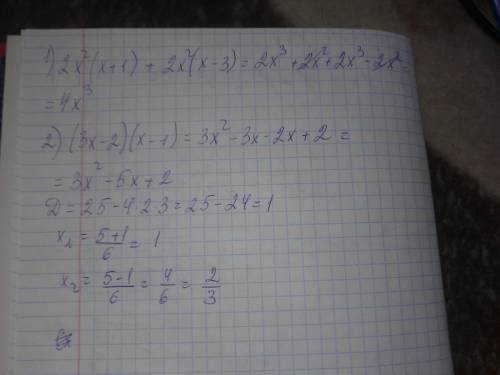 1) 2x²(x+1) + 2x²(x-3) = 2x³+2x²+2x³-2x² =
= 4x³
2) (3x-2)(x-1) = 3x²-3x-2x+2 =
= 3x²-5x+2
D = 25-4·2·3 = 25-24 = 1
x₁ = (5+1)/6 = 1
x₂ = (5-1)/6 = 4/6 = 2/3